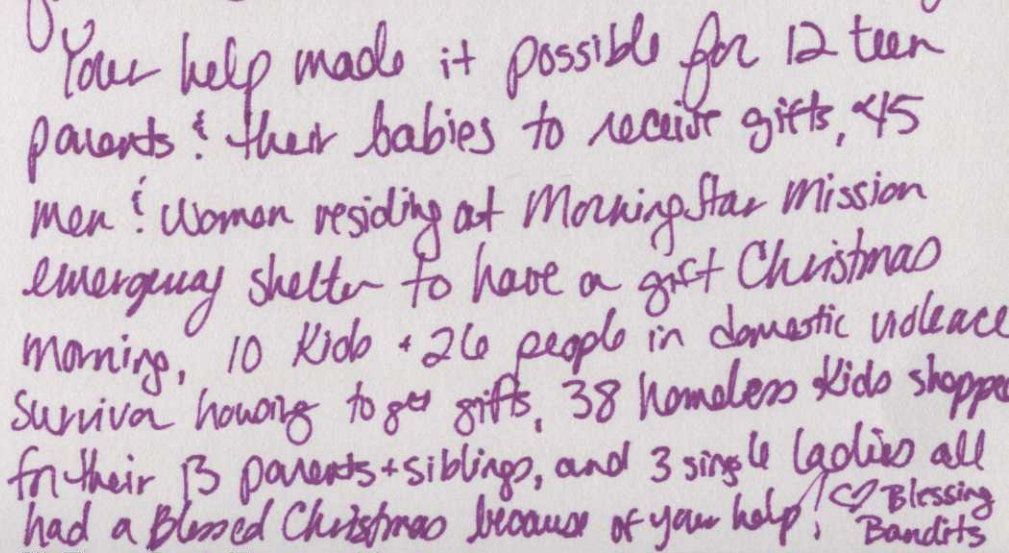 Your help made it possible for 12 teen
parents & their babies to receive gifts, 45
men & women residing at MorningStar Mission
emergency shelter to have a gift Christmas
morning, 10 kids + 26 people in domestic violence
survivor housing to get gifts, 38 homeless kids shopped
for their 13 parents + siblings, and 3 single ladies all
had a Blessed Christmas because of your help! ♡ Blessing
Bandits